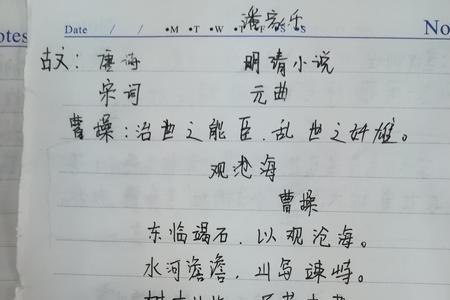 otes
潘家乐
Date / / •M •T •W •T •F •S •S No
古文：唐诗 明清小说
宋词 元曲
曹操：治世之能臣，乱世之奸雄。
观沧海
曹操
东临竭石，以观沧海。
水河澹澹，山岛竦峙。